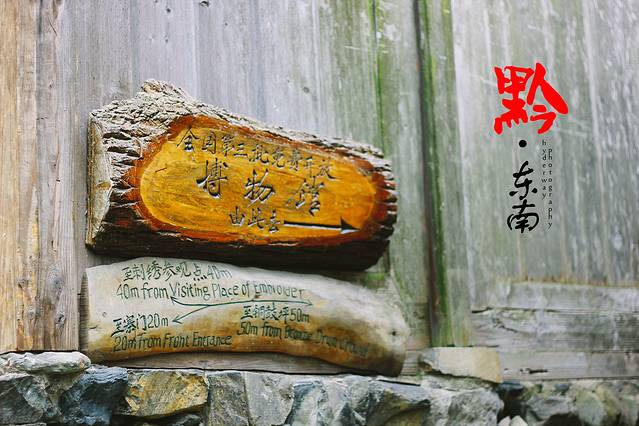 全国第三批免费开放
博物馆
由此去
至刺绣参观点40m
40m from Visiting Place of Embroider
至寨门20m
20m from Front Entrance
至铜鼓坪50m
50m from Bronze Drum Ground
黔·东南
hyderway
photography